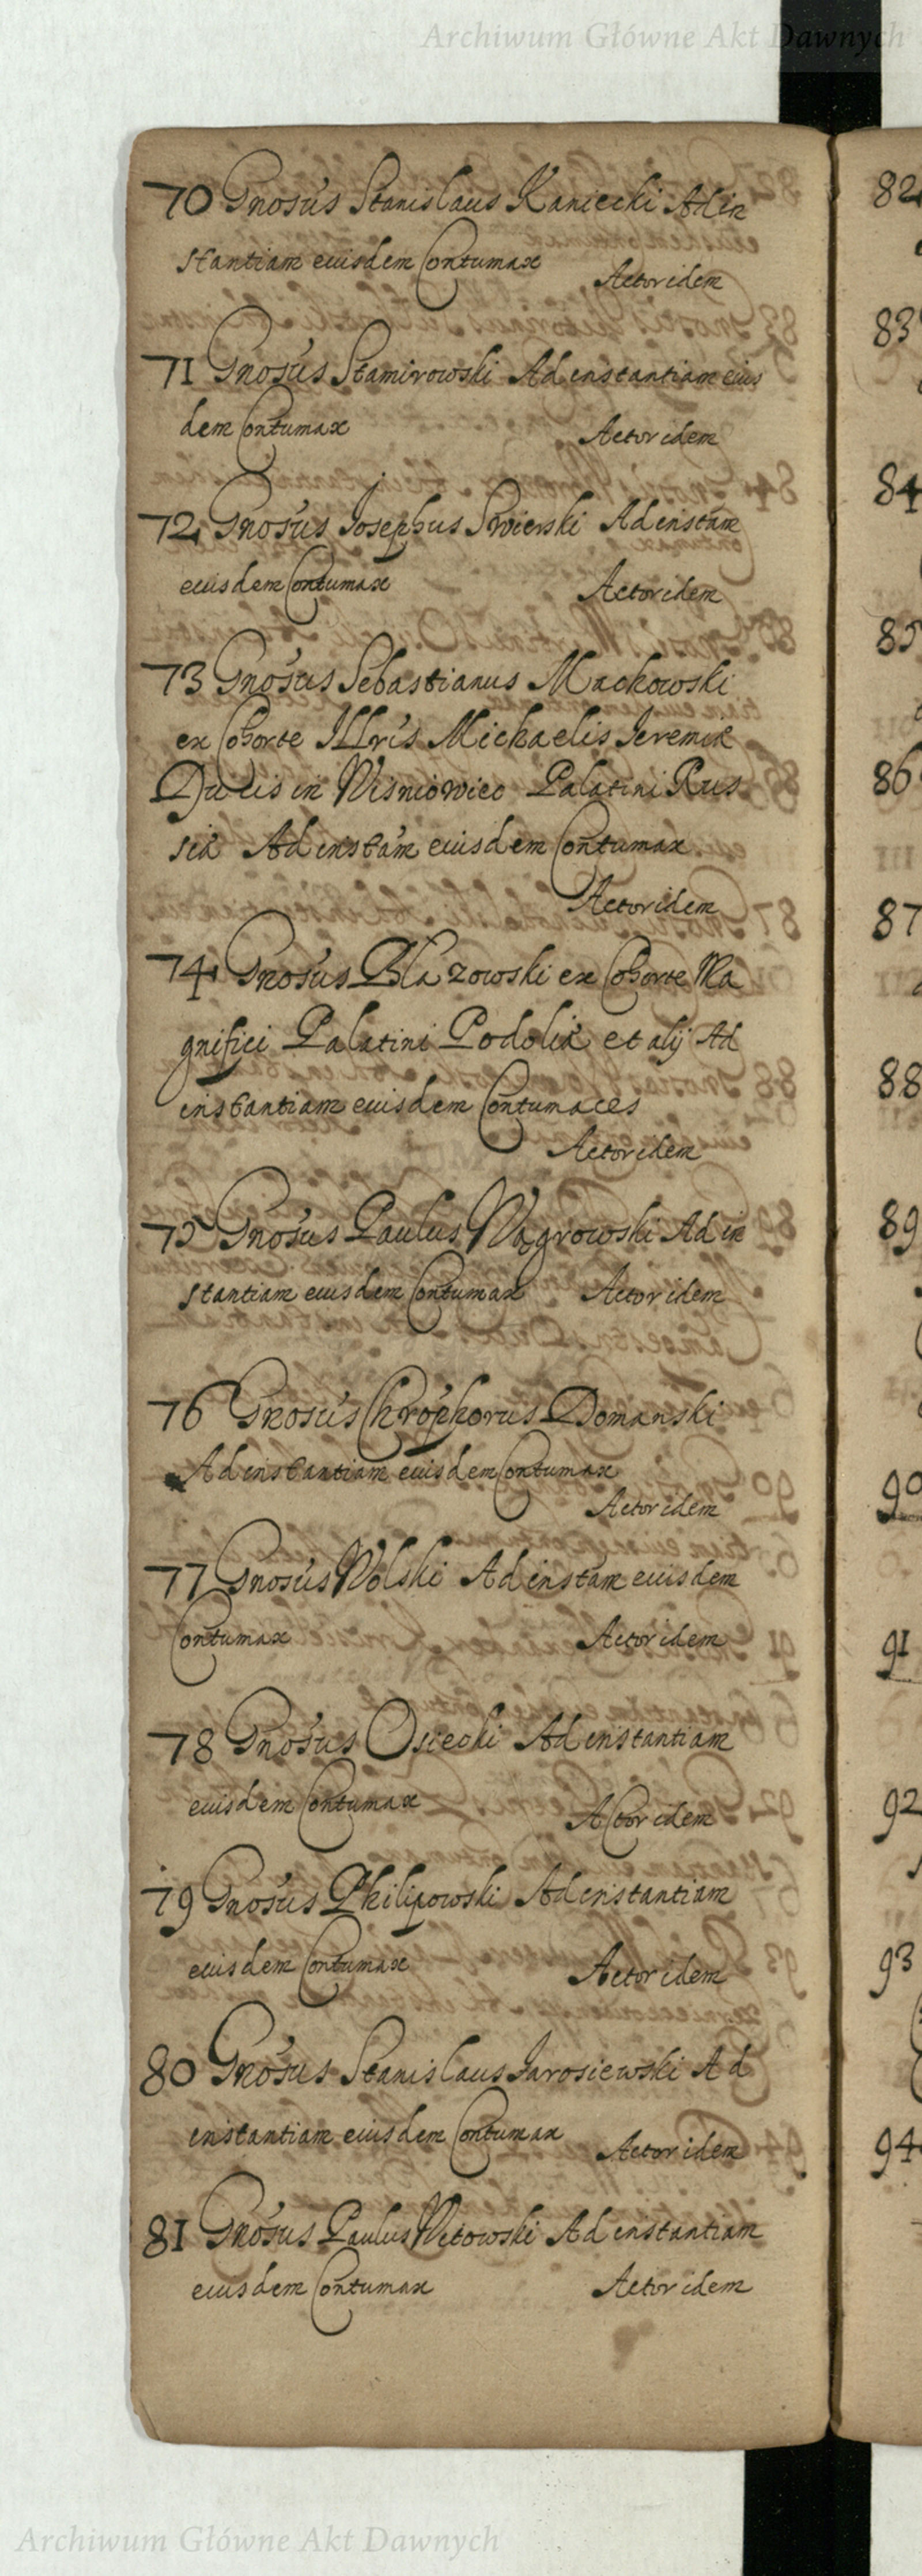 Archiwum Główne Akt Dawnych
70 Gnosus Stanislaus Kaniecki Ad in
stantiam eiusdem Contumax
Actor idem
71 Gnosus Stamirowski Ad instantiam eius
dem Contumax Actor idem
72 Gnosus Iosephus Swierski Ad instam
eiusdem Contumax Actor idem
73 Gnosus Sebastianus Mackowski
ex Cohorte Illris Michaelis Ieremiæ
Ducis in Wisniowiec Palatini Rus
siæ Ad instam eiusdem Contumax
Actor idem
74 Gnosus Blazowski ex Cohorte Ma
gnifici Palatini Podoliæ et alij Ad
instantiam eiusdem Contumaces
Actor idem
75 Gnosus Paulus Wągrowski Ad in
stantiam eiusdem Contumax Actor idem
76 Gnosus Chrophorus Domanski
Ad instantiam eiusdem Contumax
Actor idem
77 Gnosus Wolski Ad instam eiusdem
Contumax Actor idem
78 Gnosus Osiecki Ad instantiam
eiusdem Contumax Actor idem
79 Gnosus Philipowski Ad instantiam
eiusdem Contumax Actor idem
80 Gnosus Stanislaus Iarosiewski Ad
instantiam eiusdem Contumax Actor idem
81 Gnosus Paulus Witowski Ad instantiam
eiusdem Contumax Actor idem
82
83
84
85
86
87
88
89
90
91
92
93
94
Archiwum Główne Akt Dawnych